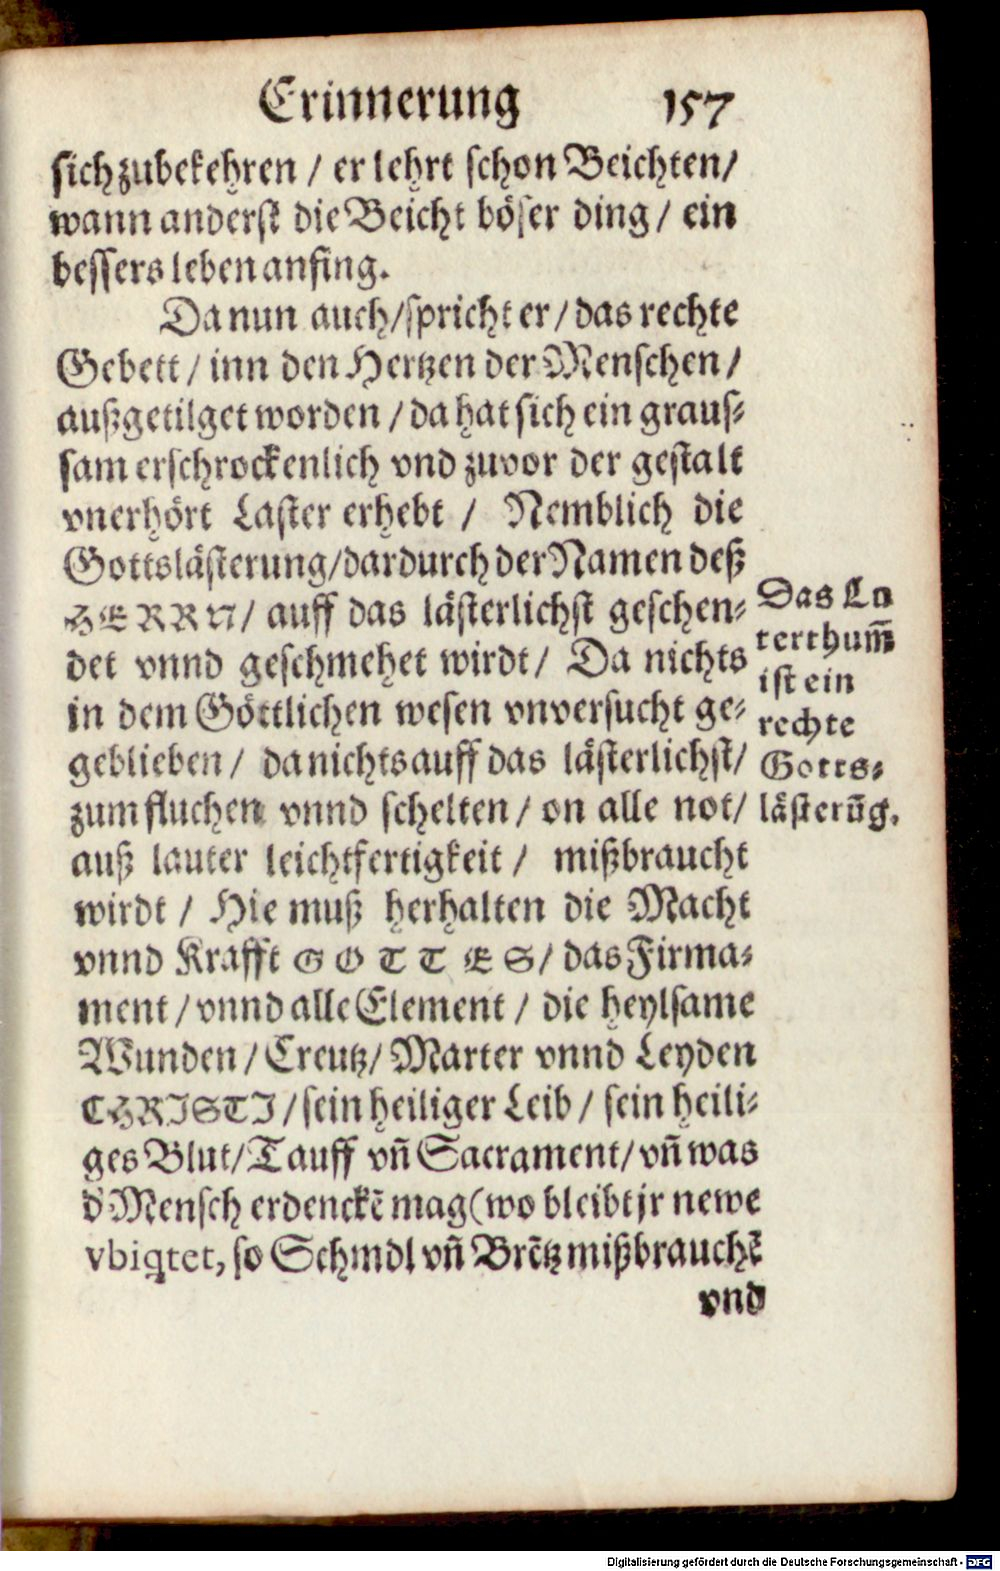 Erinnerung 157
sich zubekehren / er lehrt schon Beichten/
wann anderst die Beicht böser ding / ein
bessers leben anfing.
Da nun auch/spricht er / das rechte
Gebett / inn den Hertzen der Menschen /
außgetilget worden / da hat sich ein graus-
sam erschrockenlich vnd zuvor der gestalt
vnerhört Laster erhebt / Nemblich die
Gottslästerung/dardurch der Namen deß
HERRN/ auff das lästerlichst geschen-
det vnnd geschmehet wirdt/ Da nichts
in dem Göttlichen wesen vnversucht ge-
geblieben / da nichts auff das lästerlichst/
zum fluchen vnnd schelten / on alle not/
auß lauter leichtfertigkeit / mißbraucht
wirdt / Hie muß herhalten die Macht
vnnd Krafft GOTTES/ das Firma-
ment / vnnd alle Element / die heylsame
Wunden / Creutz/ Marter vnnd Leyden
CHRISTI / sein heiliger Leib / sein heili-
ges Blut/ Tauff vn̄ Sacrament/ vn̄ was
d' Mensch erdenckē mag (wo bleibt jr newe
vbiqtet, so Schmdl vn̄ Brētz mißbrauchē
vnd
Das Lu
terthum̄
ist ein
rechte
Gotts-
lästerūg.
Digitalisierung gefördert durch die Deutsche Forschungsgemeinschaft - DFG